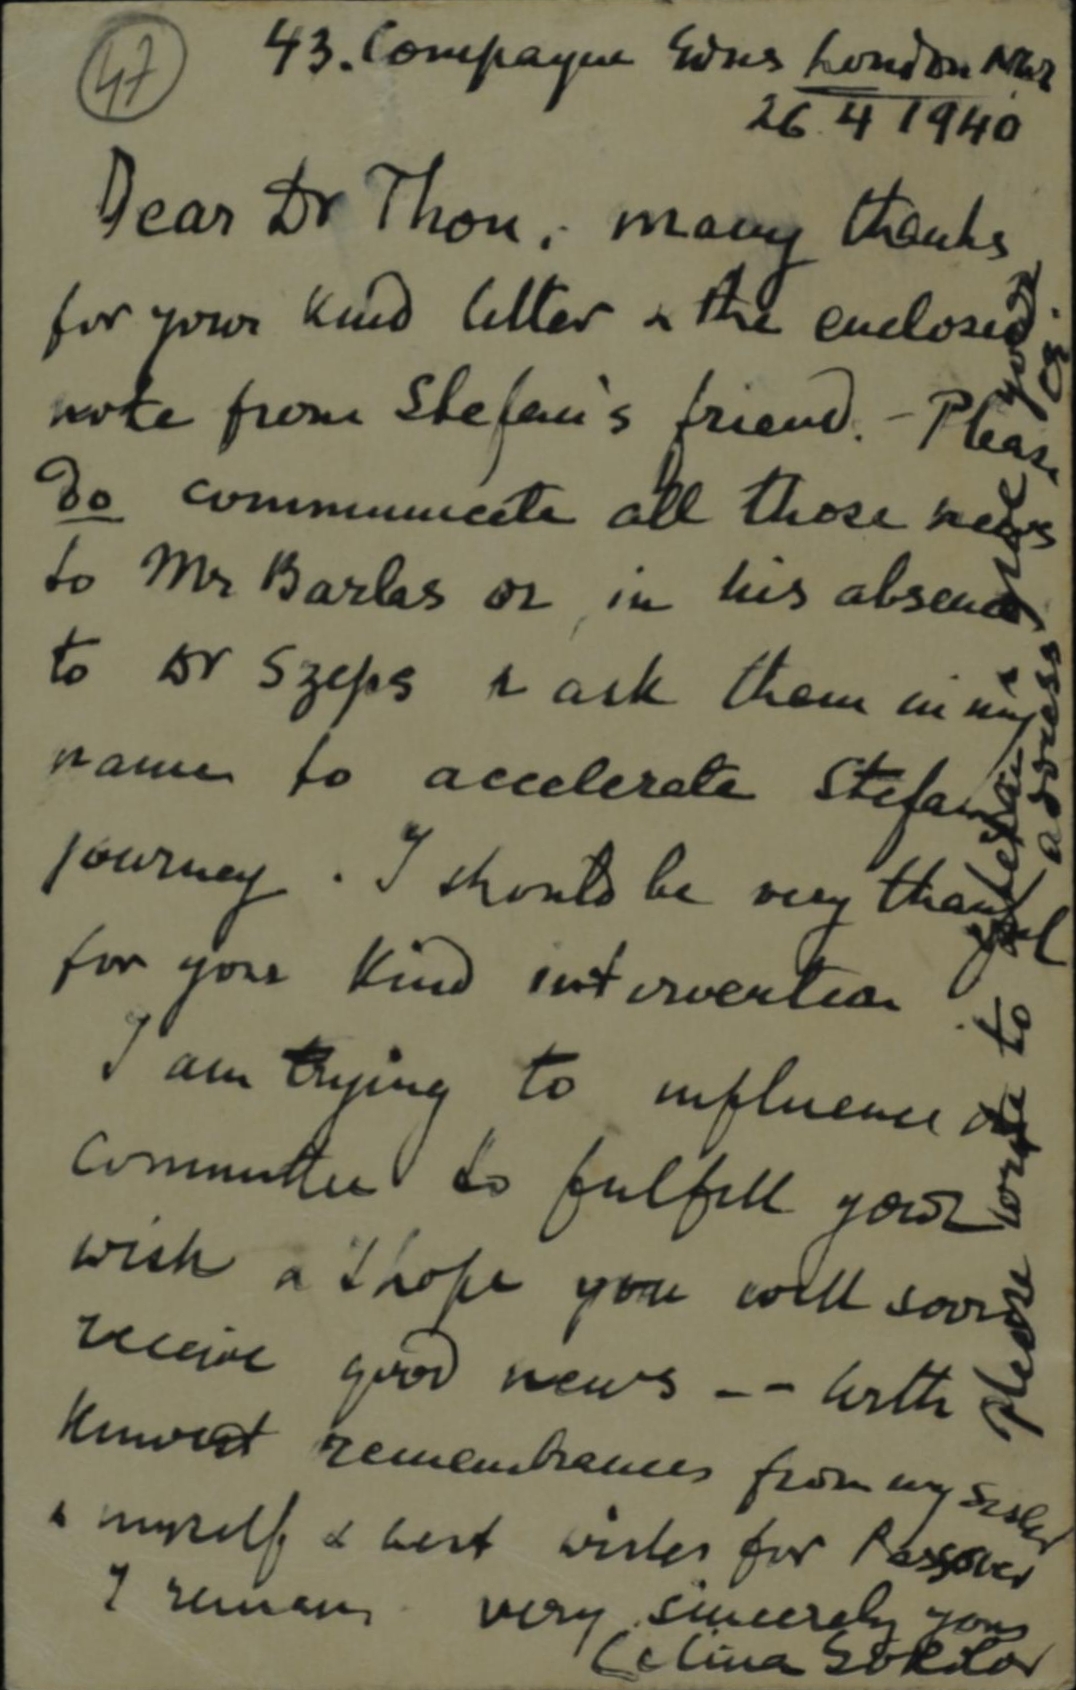 47
43. Compayne Gdns London NW2
26 4 1940
Dear Dr Thon, many thanks
for your kind letter & the enclosed
note from Stefan's friend. - Please
do communicate all those news
to Mr Barlas or in his absence
to Dr Szeps & ask them in my
name to accelerate Stefan's
journey. I should be very thankful
for your kind intervention
I am trying to influence the
Committee to fulfill your
wish & I hope you will soon
receive good news -- With
kindest remembrances from my sister
& myself & best wishes for Passover
I remain very sincerely yours
Celina Sokolow
please write to Stefan's
address